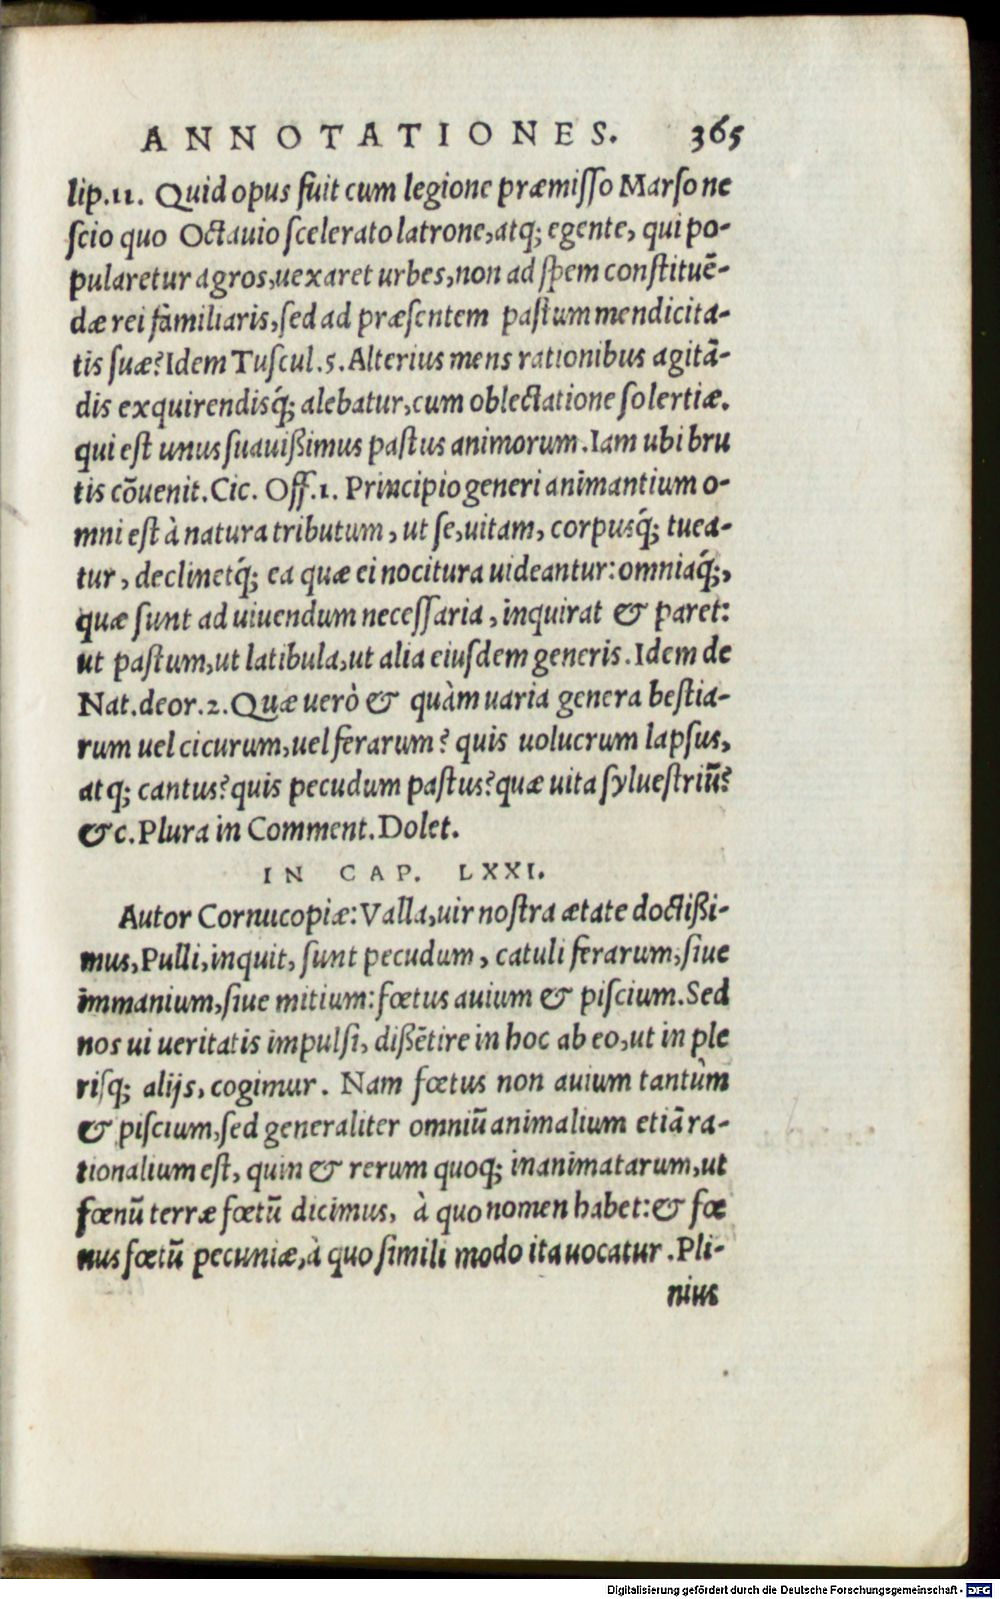 ANNOTATIONES. 365
lip.11. Quid opus fuit cum legione præmisso Marso ne
scio quo Octauio scelerato latrone,atq; egente, qui po-
pularetur agros,uexaret urbes,non ad spem constituē-
dæ rei familiaris,sed ad præsentem pastum mendicita-
tis suæ? Idem Tuscul.5. Alterius mens rationibus agitā-
dis exquirendisq́; alebatur,cum oblectatione solertiæ.
qui est unus suauißimus pastus animorum. Iam ubi bru
tis cōuenit. Cic. Off.1. Principio generi animantium o-
mni est à natura tributum, ut se,uitam, corpusq́; tuea-
tur, declinetq́; ea quæ ei nocitura uideantur: omniaq́;,
quæ sunt ad uiuendum necessaria, inquirat & paret:
ut pastum,ut latibula,ut alia eiusdem generis. Idem de
Nat.deor.2. Quæ uerò & quàm uaria genera bestia-
rum uel cicurum,uel ferarum? quis uolucrum lapsus,
atq; cantus? quis pecudum pastus? quæ uita syluestriū?
&c. Plura in Comment. Dolet.
IN CAP. LXXI.
Autor Cornucopiæ: Valla,uir nostra ætate doctißi-
mus, Pulli,inquit, sunt pecudum, catuli ferarum,siue
immanium,siue mitium: fœtus auium & piscium. Sed
nos ui ueritatis impulsi, dißētire in hoc ab eo,ut in ple
risq; alijs, cogimur. Nam fœtus non auium tantùm
& piscium,sed generaliter omniū animalium etiā ra-
tionalium est, quin & rerum quoq; inanimatarum,ut
fœnū terræ fœtū dicimus, à quo nomen habet: & fœ
nus fœtū pecuniæ,à quo simili modo ita uocatur. Pli-
nius
Digitalisierung gefördert durch die Deutsche Forschungsgemeinschaft - DFG